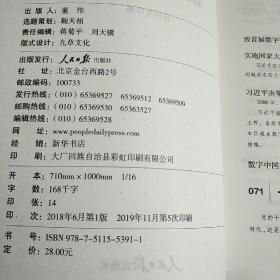 出 版 人：董 伟
选题策划：鞠天相
责任编辑：蒋菊平 刘天骥
版式设计：九章文化
出版发行：人民日报出版社
社 址：北京金台西路2号
邮政编码：100733
发行热线：（010）65369527 65369512 65369509
邮购热线：（010）65369530 65363527
编辑热线：（010）65369528
网 址：www.peopledailypress.com
经 销：新华书店
印 刷：大厂回族自治县彩虹印刷有限公司
开 本：710mm×1000mm 1/16
字 数：168千字
印 张：14
印 次：2018年6月第1版 2019年11月第5次印刷
书 号：ISBN 978-7-5115-5391-1
定 价：28.00元
致首届数字
实施国家大
习近平决策
2000年，
数字中国
071
党的十
时代，这是